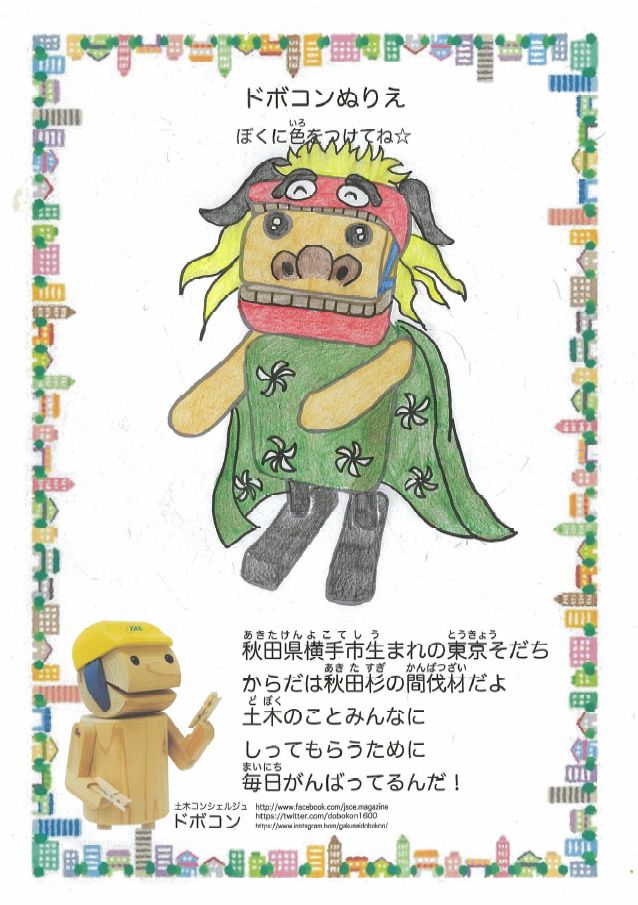 ドボコンぬりえ
いろ
ぼくに色をつけてね☆
YAS
あきたけんよこてしう とうきょう
秋田県横手市生まれの東京そだち
あきた すぎ かんばつざい
からだは秋田杉の間伐材だよ
どぼく
土木のことみんなに
しってもらうために
まいにち
毎日がんばってるんだ！
土木コンシェルジュ
ドボコン
http://www.facebook.com/jsce.magazine
https://twitter.com/dobokon1600
https://www.instagram.com/gakuseidobokon/